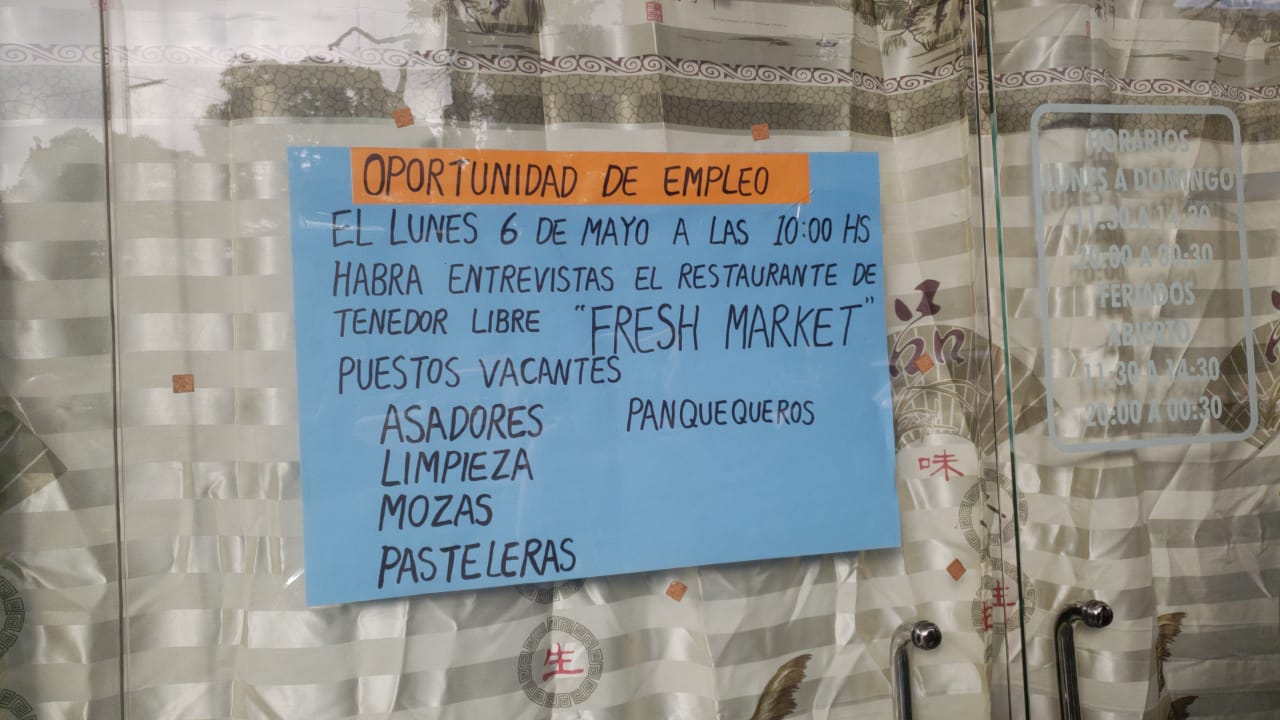 OPORTUNIDAD DE EMPLEO
EL LUNES 6 DE MAYO A LAS 10:00 HS
HABRA ENTREVISTAS EL RESTAURANTE DE
TENEDOR LIBRE "FRESH MARKET"
PUESTOS VACANTES
ASADORES PANQUEQUEROS
LIMPIEZA
MOZAS
PASTELERAS
HORARIOS
LUNES A DOMINGO
11:30 A 14:30
20:00 A 00:30
FERIADOS
ABIERTO
11:30 A 14:30
20:00 A 00:30
味
生